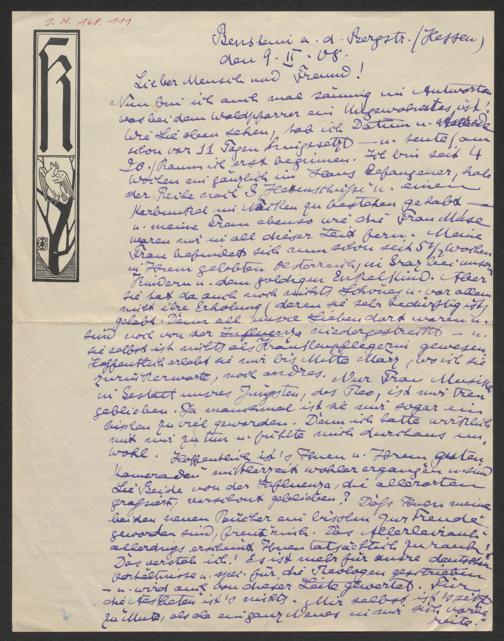 I. N. 168.111
Bensheim a. d. Bergstr. (Hessen)
den 9. II. 08.
Lieber Mensch und Freund!
Nun bin ich auch mal säumig im Antworten
was bei dem Waldpfarrer ein Ungewohntes ist!
Wie Sie oben sehen, hab ich Datum u.
schon vor 11 Tagen hingesetzt — u. heute (am
20.) kann ich erst beginnen. Ich bin seit 4
Wochen ein gänzlich im Haus Gefangener, habe
der Reihe nach 3 Hexenschüsse u. einen
Karbunkel im Nacken zu bestehen gehabt —
u. meine Frau ebenso wie die Frau Muse
waren mir in all dieser Zeit fern. Meine
Frau befindet sich nun schon seit 5½ Wochen
in Ihrem gelobten Oesterreich, in Graz bei unsern
Kindern u. dem goldigen Enkelkind. Aber
sie hat da auch noch nichts Schönes u. vor allem
nicht ihre Erholung (deren sie sehr bedürftig ist)
gehabt. Denn alle unsre Lieben dort waren u.
sind noch von der Influenza niedergestreckt — u.
sie selbst ist nichts als Krankenpflegerin gewesen.
Hoffentlich erlebt sie nur bis Mitte März, wo ich sie
zurückerwarte, noch andres. Nur Frau Musika
in Gestalt unsres Jüngsten, des Theo, ist mir treu
geblieben. Da manchmal ist sie mir sogar ein
bischen zu viel geworden. Denn ich hatte wirklich
mit mir zu tun u. fühlte mich durchaus un-
wohl. Hoffentlich ist's Ihnen u. Ihrem guten
Kameraden mittlerzeit wohler ergangen u. sind
Sie Beide von der Influenza, die allerorten
grassiert, verschont geblieben? Daß Ihnen meine
beiden neuen Bücher ein bissln zur Freude
geworden sind, freut mich. Das
allerdings erscheint Ihnen tatsächlich zu rauh!
Das versteh ich! Es ist mehr für andre deutsche
Verhältnisse u. spez. für die Theologen geschrieben
— u. wird auch von dieser Seite gewertet. Für
die Aestheten ist's nichts. Mir selbst ist's seitd.
zu Mute, als ob ein ganz Neues in mir sich vorbe-
reite!